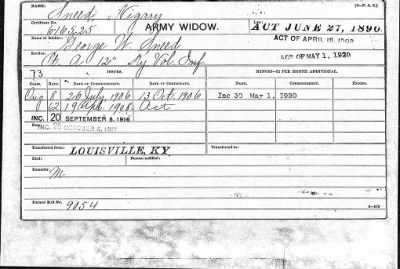 NAME:
Sneed, Nigary
ARMY WIDOW.
ACT JUNE 27, 1890
616325
ACT OF APRIL 19, 1908
Name of Soldier:
George W. Sneed
ACT OF MAY 1, 1920
Service:
Co. A. 12" Ky Vol. Inf
73
ISSUES.
CLASS. RATE. DATE OF CERTIFICATE. COMMENCEMENT.
NAME. COMMENCEMENT. ENDING.
Orig 8 26 July, 1906 13 Oct. 1906
Inc 30 May 1, 1920
12 19 Apr. 1908. Act
INC. 20 SEPTEMBER 8, 1916
INC. 25 OCTOBER 6, 1917
Transferred from
LOUISVILLE, KY.
Transferred to:
Died:
Bureau notified:
Remarks:
M
Former Roll No.
9054